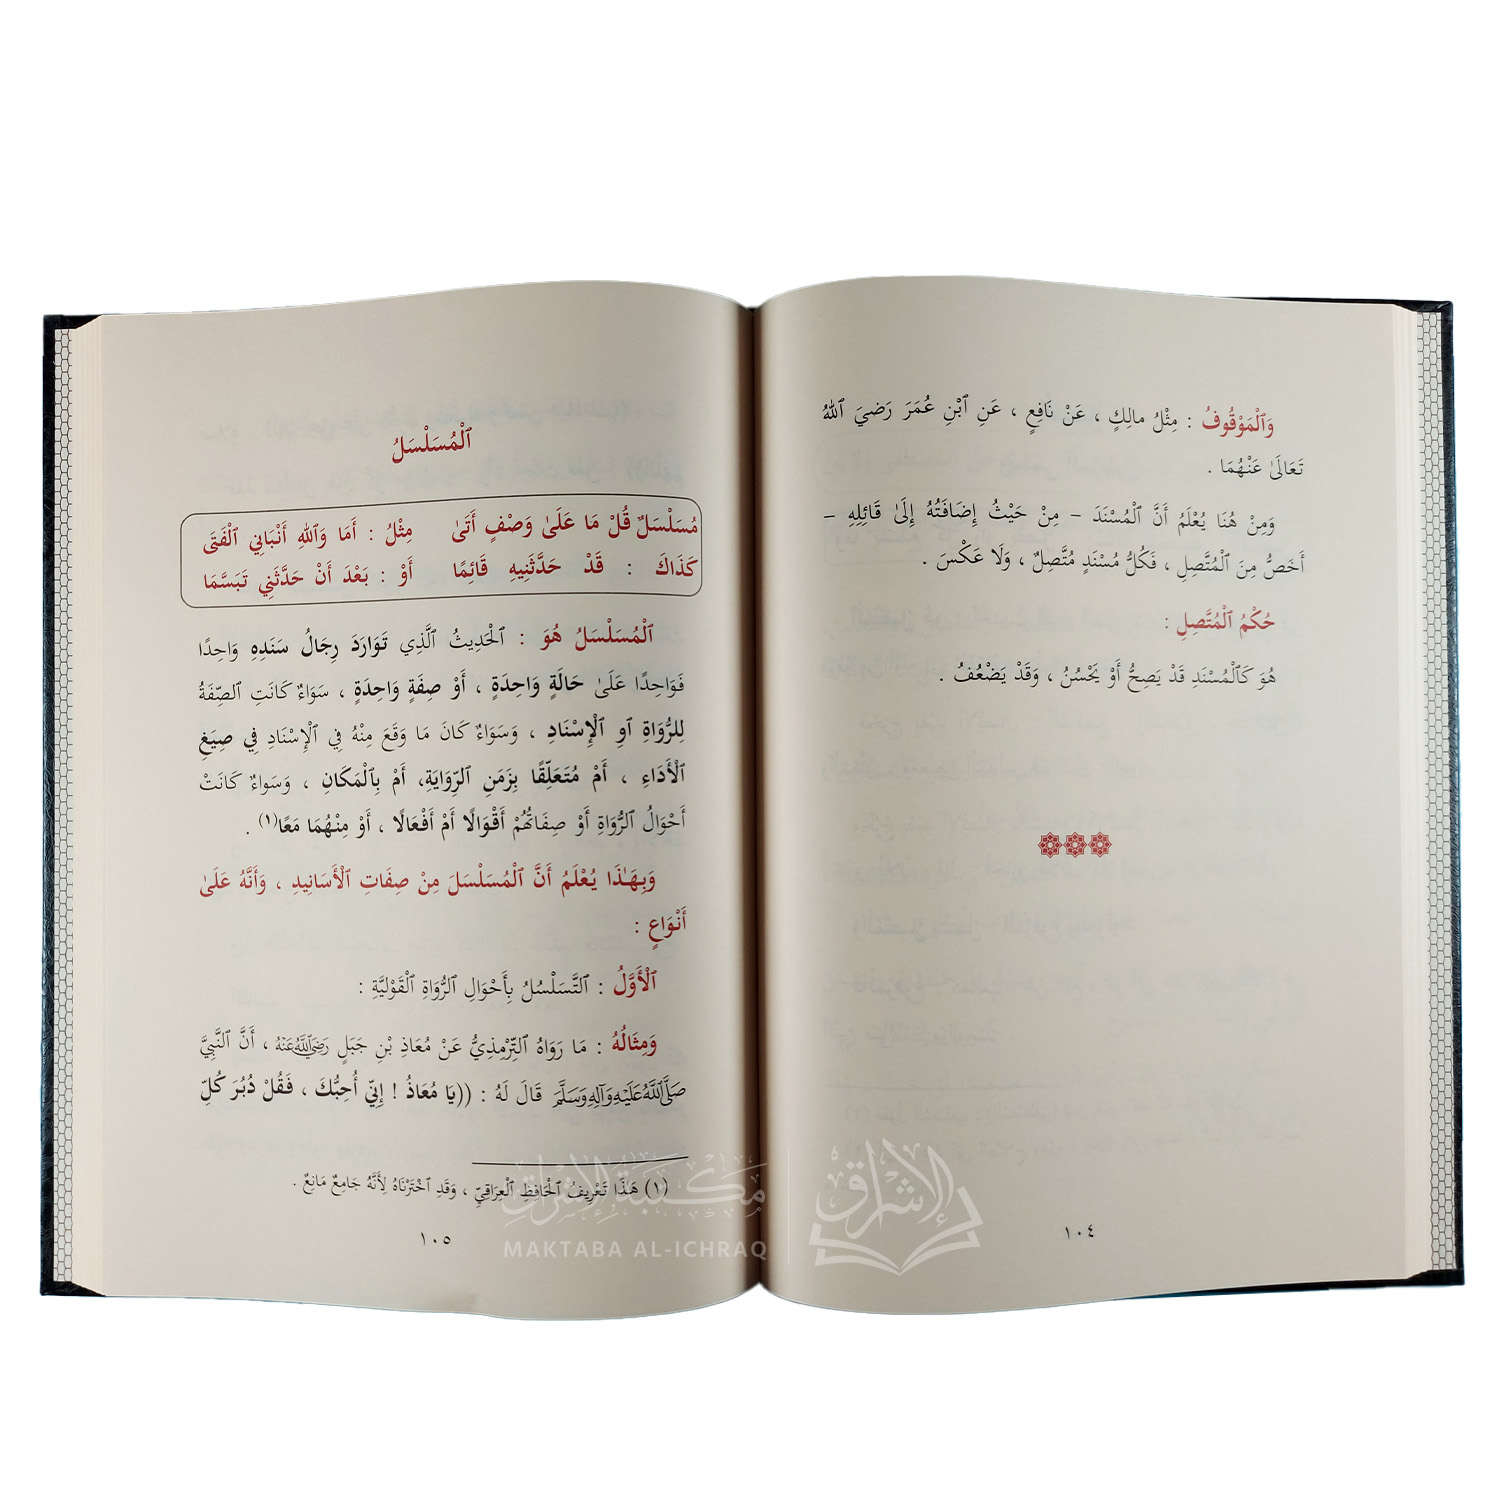 وَٱلْمَوْقُوفُ : مِثْلُ مالِكٍ ، عَنْ نَافِعٍ ، عَنِ ٱبْنِ عُمَرَ رَضيَ ٱللهُ
تَعَالَىٰ عَنْهُمَا .
وَمِنْ هُنَا يُعْلَمُ أَنَّ ٱلْمُسْنَدَ – مِنْ حَيْثُ إِضَافَتُهُ إِلَىٰ قَائِلِهِ –
أَخَصُّ مِنَ ٱلْمُتَّصِلِ ، فَكُلُّ مُسْنَدٍ مُتَّصِلٌ ، وَلَا عَكْسَ .
حُكْمُ ٱلْمُتَّصِلِ :
هُوَ كَٱلْمُسْنَدِ قَدْ يَصِحُّ أَوْ يَحْسُنُ ، وَقَدْ يَضْعُفُ .
١٠٤
ٱلْمُسَلْسَلُ
مُسَلْسَلٌ قُلْ مَا عَلَىٰ وَصْفٍ أَتَىٰ مِثْلُ : أَمَا وَٱللهِ أَنْبَانِي ٱلْفَتَىٰ
كَذَاكَ : قَدْ حَدَّثَنِيهِ قَائِمًا أَوْ : بَعْدَ أَنْ حَدَّثَنِي تَبَسَّمَا
ٱلْمُسَلْسَلُ هُوَ : ٱلْحَدِيثُ ٱلَّذِي تَوَارَدَ رِجَالُ سَنَدِهِ وَاحِدًا
فَوَاحِدًا عَلَىٰ حَالَةٍ وَاحِدَةٍ ، أَوْ صِفَةٍ وَاحِدَةٍ ، سَوَاءٌ كَانَتِ ٱلصِّفَةُ
لِلرُّوَاةِ ٱَوِ ٱلْإِسْنَادِ ، وَسَوَاءٌ كَانَ مَا وَقَعَ مِنْهُ فِي ٱلْإِسْنَادِ فِي صِيَغِ
ٱلْأَدَاءِ ، أَمْ مُتَعَلِّقًا بِزَمَنِ ٱلرِّوَايَةِ، أَمْ بِٱلْمَكَانِ ، وَسَوَاءٌ كَانَتْ
أَحْوَالُ ٱلرُّوَاةِ أَوْ صِفَاتُهُمْ أَقْوَالًا أَمْ أَفْعَالًا ، أَوْ مِنْهُمَا مَعًا(١) .
وَبِهَـٰذَا يُعْلَمُ أَنَّ ٱلْمُسَلْسَلَ مِنْ صِفَاتِ ٱلْأَسَانِيدِ ، وَأَنَّهُ عَلَىٰ
أَنْوَاعٍ :
ٱلْأَوَّلُ : ٱلتَّسَلْسُلُ بِأَحْوَالِ ٱلرُّوَاةِ ٱلْقَوْلِيَّةِ :
وَمِثَالُهُ : مَا رَوَاهُ ٱلتِّرْمِذِيُّ عَنْ مُعَاذِ بْنِ جَبَلٍ رَضِيَ ٱللَّهُ عَنْهُ ، أَنَّ ٱلنَّبِيَّ
صَلَّى ٱللَّهُ عَلَيْهِ وَآلِهِ وَسَلَّمَ قَالَ لَهُ : ((يَا مُعَاذُ ! إِنِّي أُحِبُّكَ ، فَقُلْ دُبُرَ كُلِّ
(١) هَـٰذَا تَعْرِيفُ ٱلْحَافِظِ ٱلْعِرَاقِيِّ ، وَقَدِ ٱخْتَرْنَاهُ لِأَنَّهُ جَامِعٌ مَانِعٌ .
١٠٥
مكتبة الإشراق
MAKTABA AL-ICHRAQ
الإشراق